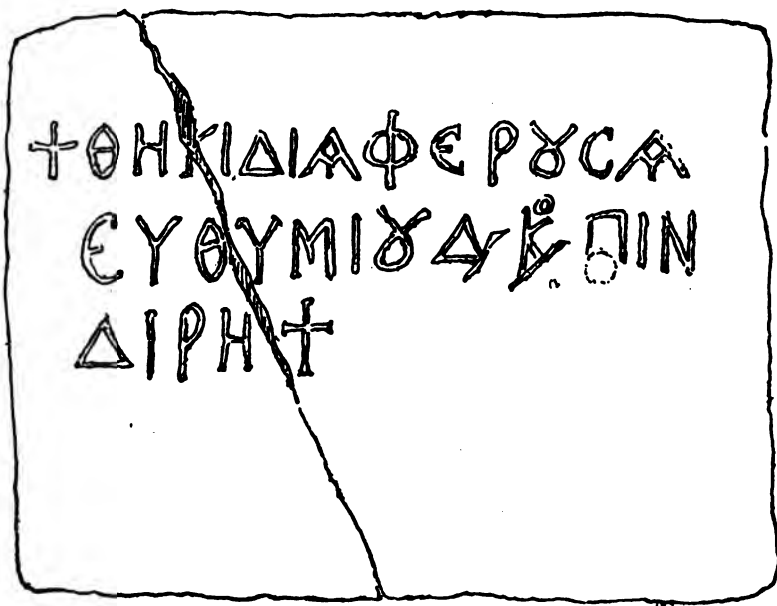 +ΘΗΚΙΔΙΑΦΕΡȢϹΑ
ЄΥΘΥΜΙȢΔΚοΠΙΝ
ΔΙΡΗ+